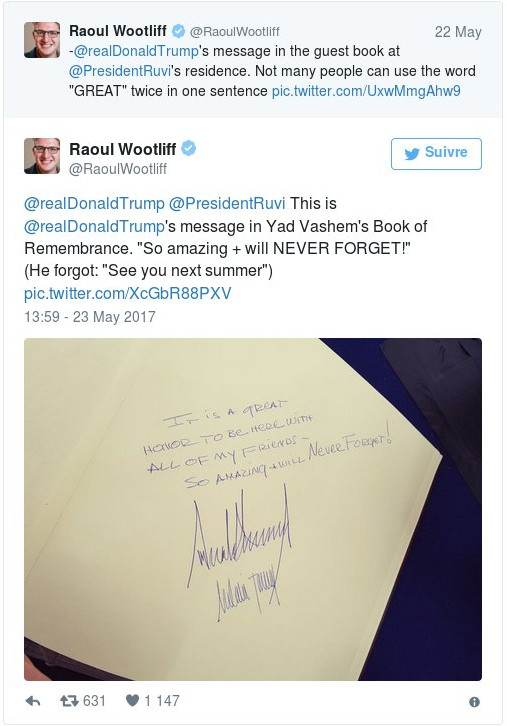 Raoul Wootliff @RaoulWootliff 22 May
-@realDonaldTrump's message in the guest book at
@PresidentRuvi's residence. Not many people can use the word
"GREAT" twice in one sentence pic.twitter.com/UxwMmgAhw9
Raoul Wootliff
@RaoulWootliff
Suivre
@realDonaldTrump @PresidentRuvi This is
@realDonaldTrump's message in Yad Vashem's Book of
Remembrance. "So amazing + will NEVER FORGET!"
(He forgot: "See you next summer")
pic.twitter.com/XcGbR88PXV
13:59 - 23 May 2017
IT IS A GREAT
HONOR TO BE HERE WITH
ALL OF MY FRIENDS -
SO AMAZING + WILL NEVER FORGET!
631
1 147